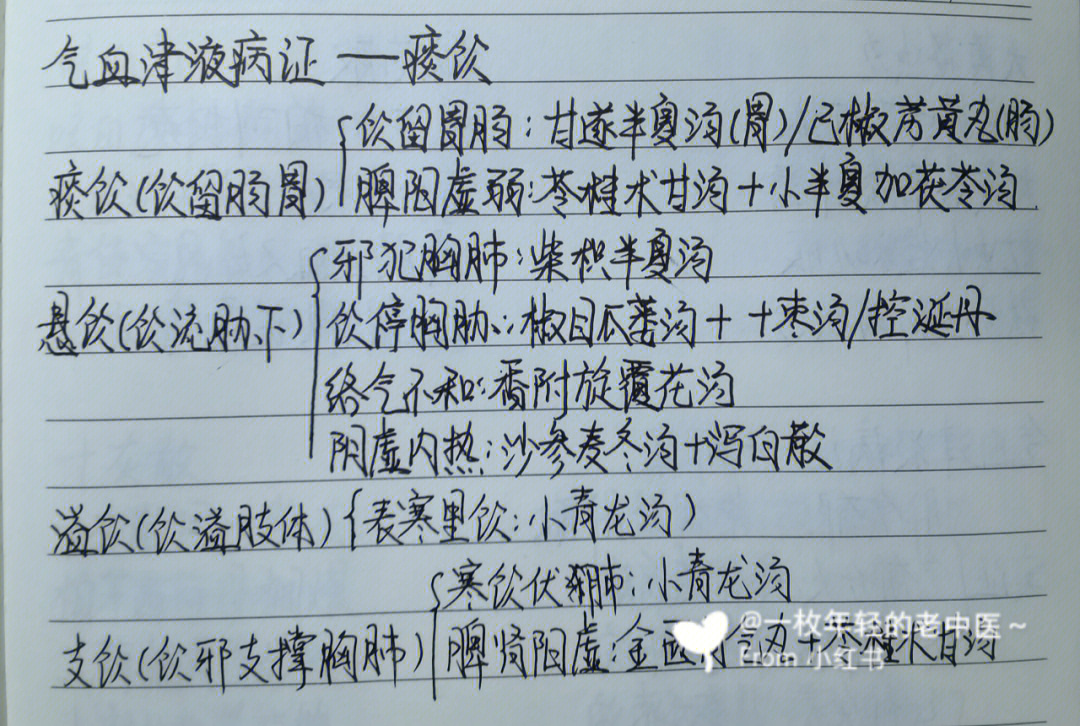 气血津液病证——痰饮
饮留胃肠:甘遂半夏汤(胃)/己椒苈黄丸(肠)
痰饮(饮留肠胃)
脾阳虚弱:苓桂术甘汤+小半夏加茯苓汤
邪犯胸肺:柴枳半夏汤
悬饮(饮流胁下)
饮停胸胁:椒目瓜蒌汤+十枣汤/控涎丹
络气不和:香附旋覆花汤
阴虚内热:沙参麦冬汤+泻白散
溢饮(饮溢肢体){表寒里饮:小青龙汤)
寒饮伏肺:小青龙汤
支饮(饮邪支撑胸肺)
脾肾阳虚:金匮肾气丸+苓桂术甘汤
@一枚年轻的老中医~
From 小红书